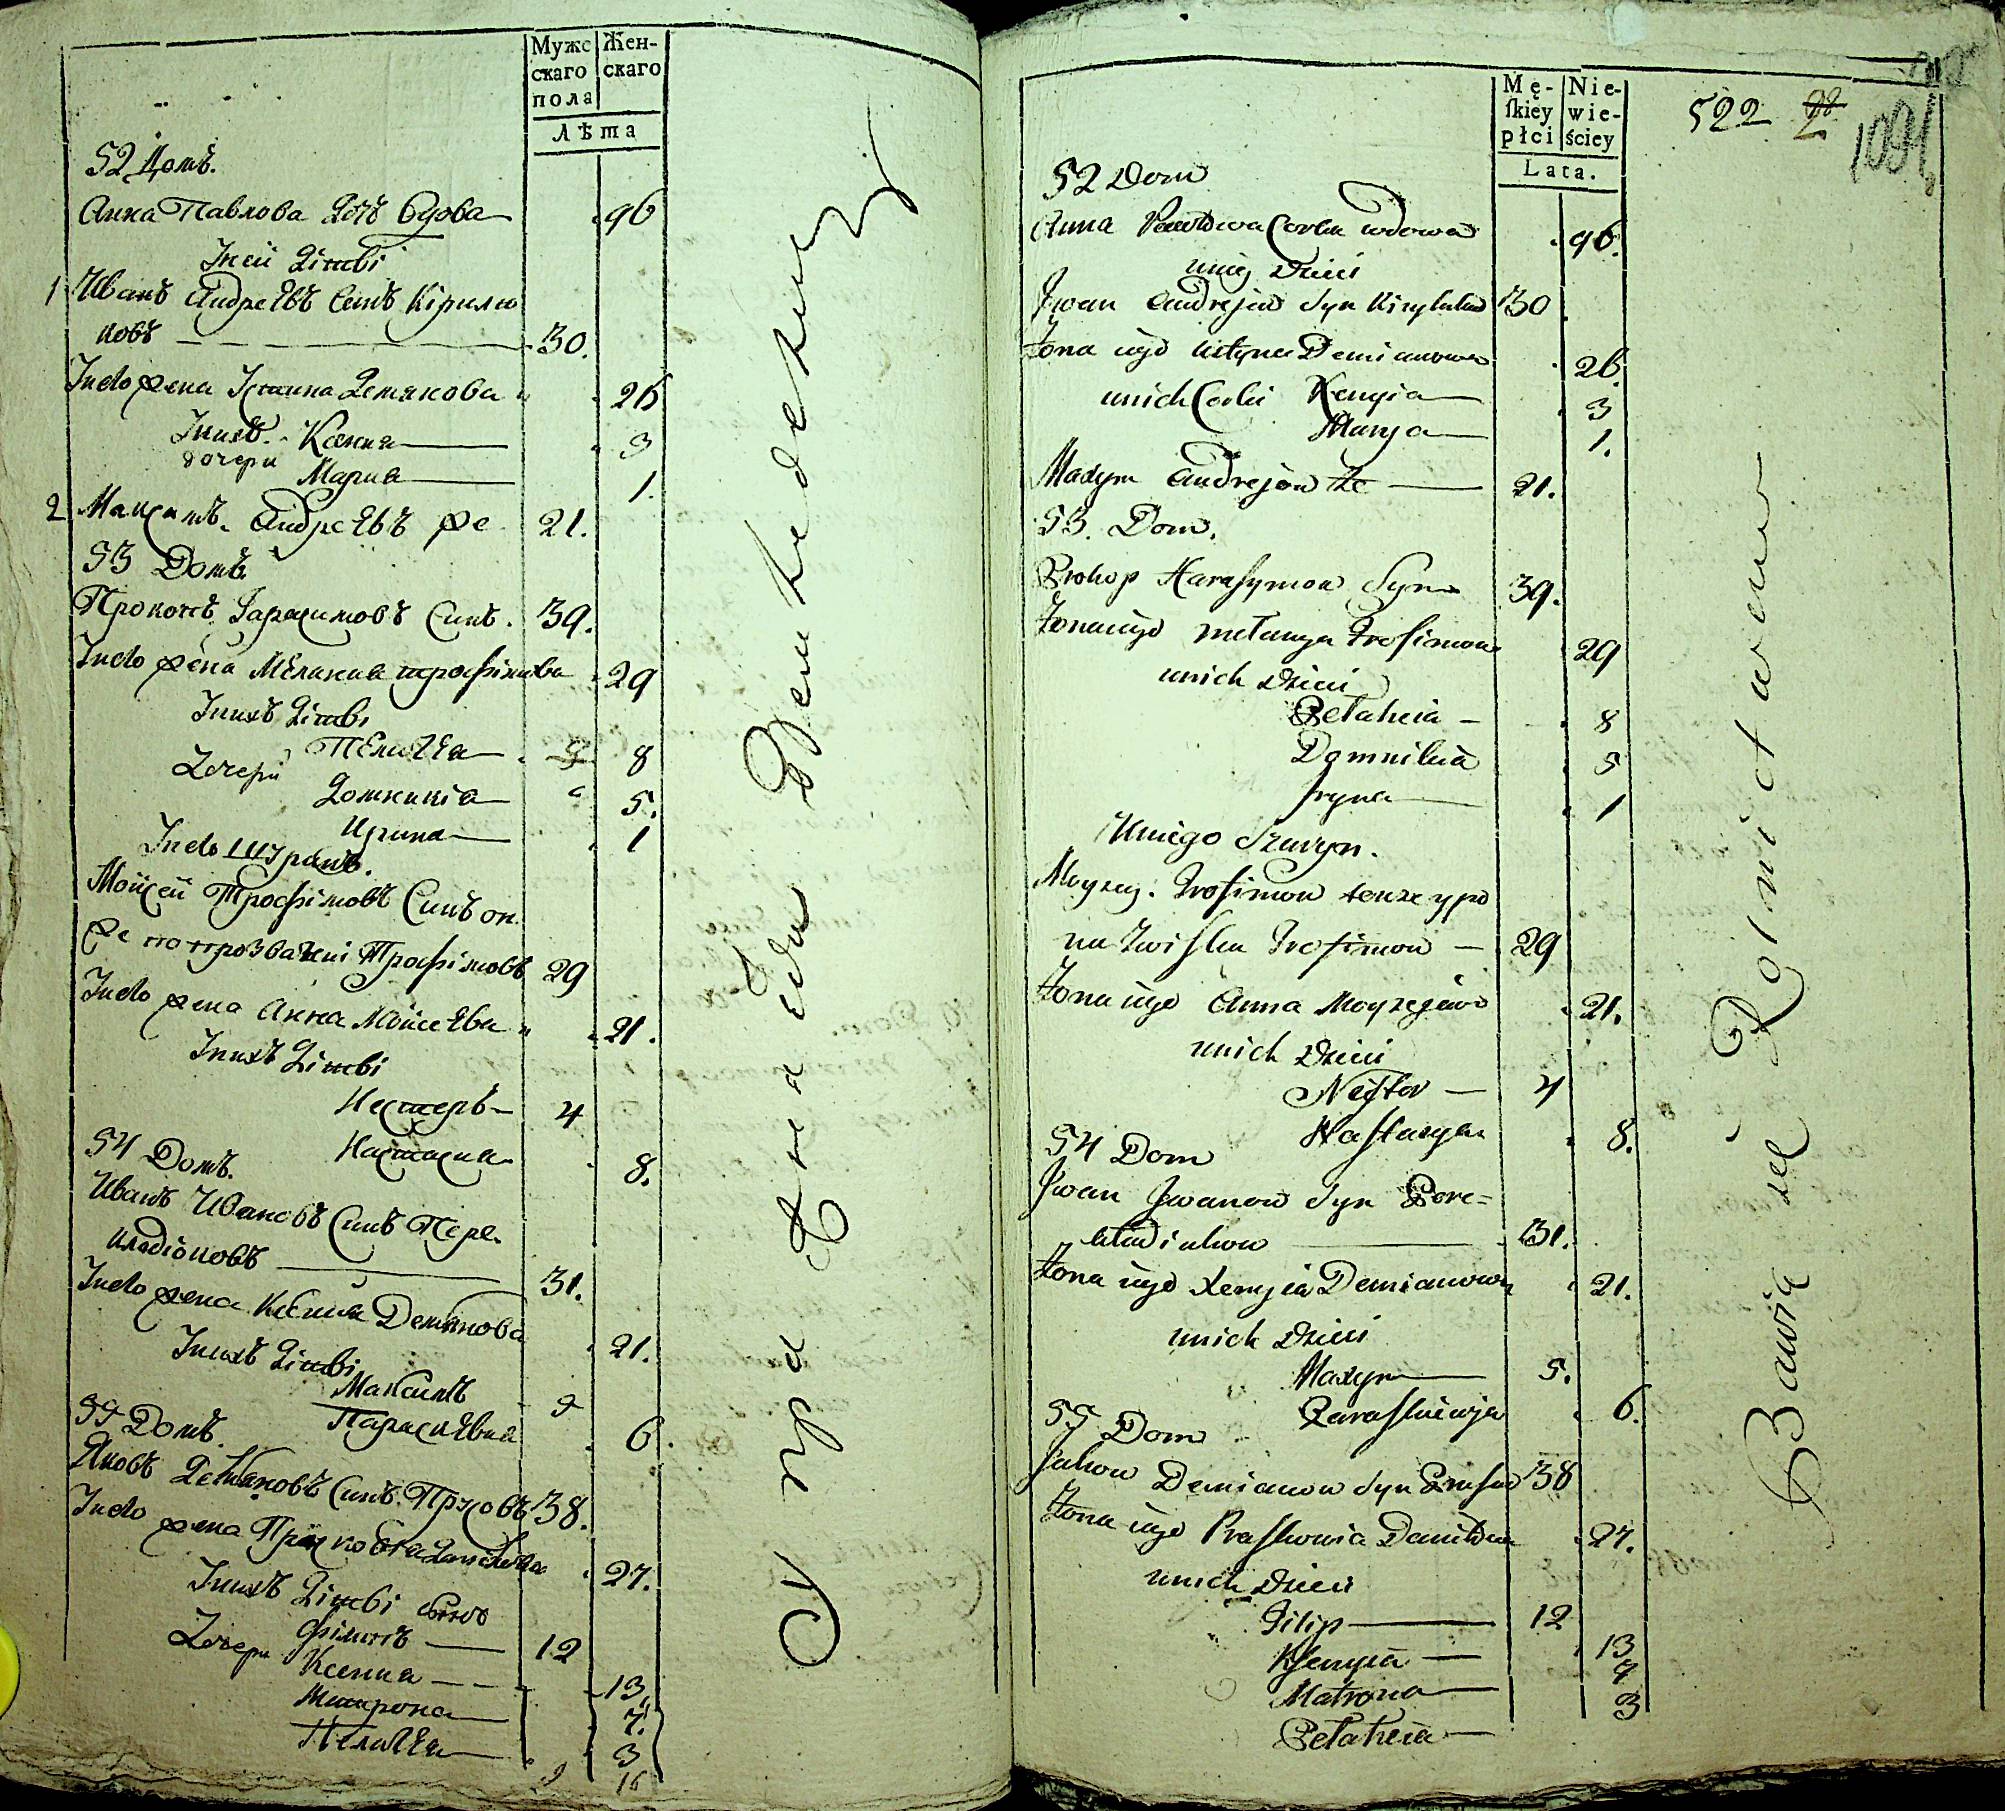 Мужс
скаго
пола
Жен-
скаго
Лѣта
52 Домъ.
Анна Павлова Дочъ Вдова 96
Унеи Дѣтви
1 Иванъ Андреѣвъ Синъ Кірилю
ковъ 30.
Унего жена Устина Демянова 26
Унихъ Ксения 3
дочери Мария 1.
2 Максимъ Андреѣвъ же 21.
53 Домъ.
Прокопъ Гарасимовъ Синъ. 39.
Унего жена Мелания трофімова 29
Унихъ Дітві
Дочери Пелагѣя 8
Домникія 5.
Ирина 1
Унего Шуринъ.
Мойсей Трофімовъ Синъ он
же по прозванні Трофімовъ 29
Унего жена Анна Мойсеѣва 21.
Унихъ Дітві
Нестеръ 4
Настасия 8.
54 Домъ.
Иванъ Ивановъ Синъ Пере-
кладіоковъ 31.
Унего жена Ксения Демянова 21.
Унихъ Дітві
Максимъ 5
Параскѣвия 6.
55 Домъ.
Яковъ Демяновъ Синъ 38.
Унего жена Прасковія 27.
Унихъ Дітві
Філипъ 12
Дочери Ксения 13,
Матрона 7.
Пелагѣя 3
16
Mę-
ſkiey
płci
Nie-
wie-
ściey
Lata.
522
52 Dom
Anna Pawłowa Corka wdowa 96.
uniey Dzieci
Jwan Andrejow Syn Kirylukow 30
Żona iego Ustyna Demianowa 26.
unich Corki Xenyia 3
Marya 1.
Maxym Andrejow że 21.
53. Dom.
Prokop Harasymow Syn 39.
Żona iego Melanya Trofimowa 29
unich Dzieci
Pelaheia 8
Domnikia 5
Jryna 1
Uniego Szuryn.
Moyzey. Trofimow tenze ypo
nazwisku Trofimow 29
Żona iego Anna Moyzejowa 21.
unich Dzieci
Nestor 4
Nastazya 8.
54 Dom
Jwan Jwanow Syn Pere=
kładiukow 31.
Żona iego Xenyia Demianowa 21.
unich Dzieci
Maxym 5.
Paraskiewja 6.
55 Dom
Jakow Demianow Syn 38
Żona iego Praskowia Daniłowa 27.
unich Dzieci
Filip 12
Xsenyia 13
Matrona 7
Pelaheia 3